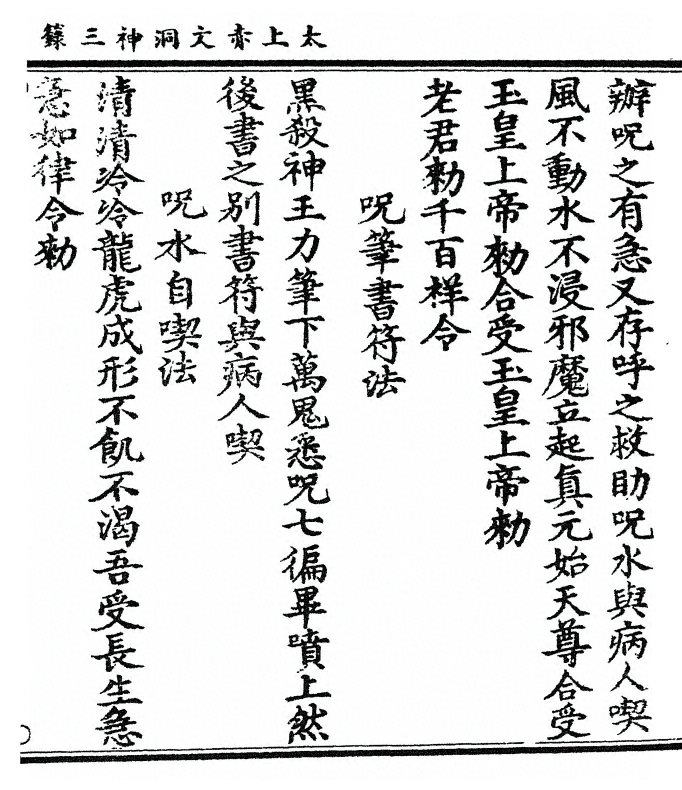 太上赤文洞神三籙
辦呪之有急又存呼之救助呪水與病人喫
風不動水不浸邪魔立起真元始天尊合受
玉皇上帝勑合受玉皇上帝勑
老君勑千百样令
呪筆書符法
黑殺神王力筆下萬鬼悉呪七徧畢噴上然
後書之别書符與病人喫
呪水自喫法
清清冷冷龍虎成形不飢不渴吾受長生急
急如律令勑